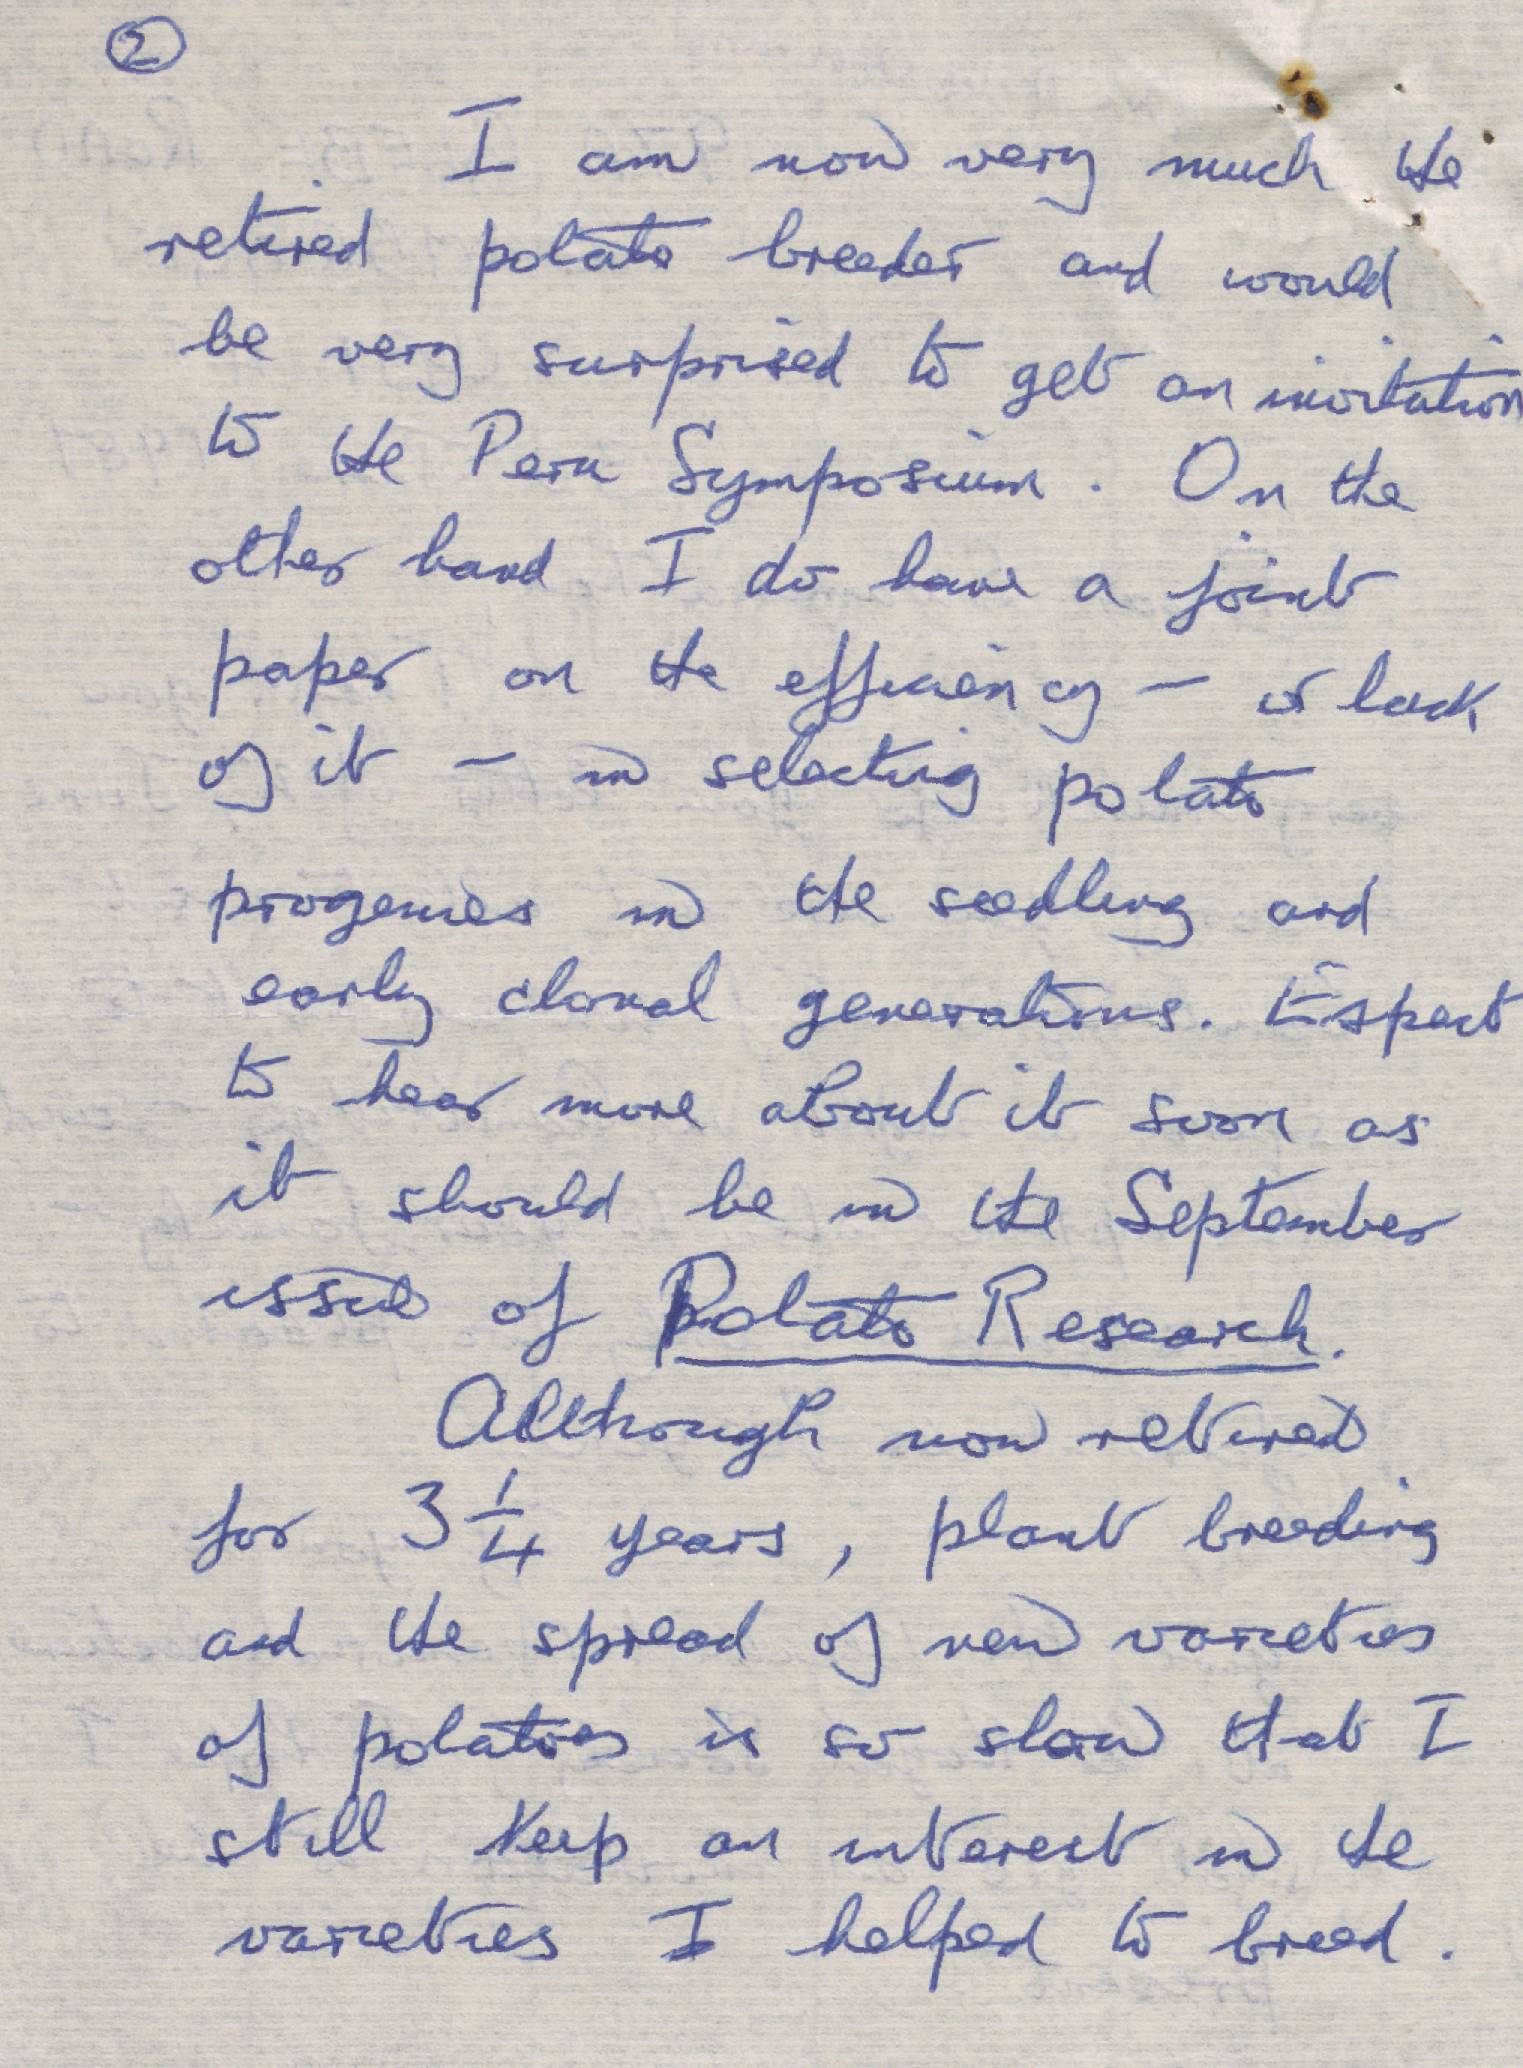 2
I am now very much the
retired potato breeder and would
be very surprised to get an invitation
to the Peru Symposium. On the
other hand I do have a joint
paper on the efficiency – or lack
of it – in selecting potato
progenies in the seedling and
early clonal generations. Expect
to hear more about it soon as
it should be in the September
issue of Potato Research.
Although now retired
for 3 1/4 years, plant breeding
and the spread of new varieties
of potatoes is so slow that I
still keep an interest in the
varieties I helped to breed.